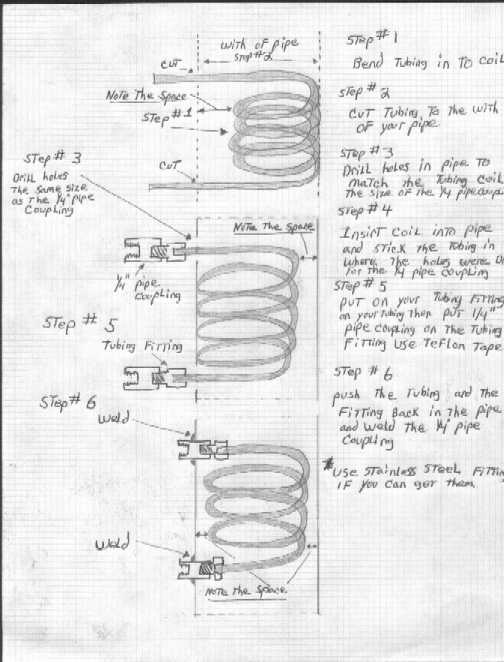 with of pipe
Step #2
CUT
Note The Space
STep #1
CUT
STep # 3
Drill holes
The same size
as The 1/4" pipe
Coupling
Note The Space
1/4" pipe
Coupling
STep # 5
Tubing Fitting
STep #6
Weld
Weld
Note The Space
STep # 1
Bend Tubing in TO Coil
STep # 2
CuT Tubing To the with
OF your pipe
STep # 3
Drill holes in pipe TO
Match the Tubing Coil
The size of the 1/4 pipe
STep # 4
InsirT Coil inTo pipe
and stick the Tubing in
where the holes were
for the 1/4 pipe coupling
STep # 5
puT on your Tubing FiTTing
on your Tubing then puT 1/4"
pipe coupling on the Tubing
FiTTing use TeFlon Tape
STep # 6
push The Tubing and the
FiTTing Back in the pipe
and weld the 1/4" pipe
Coupling
*Use STainless STeel FiTTing
IF you can get them.